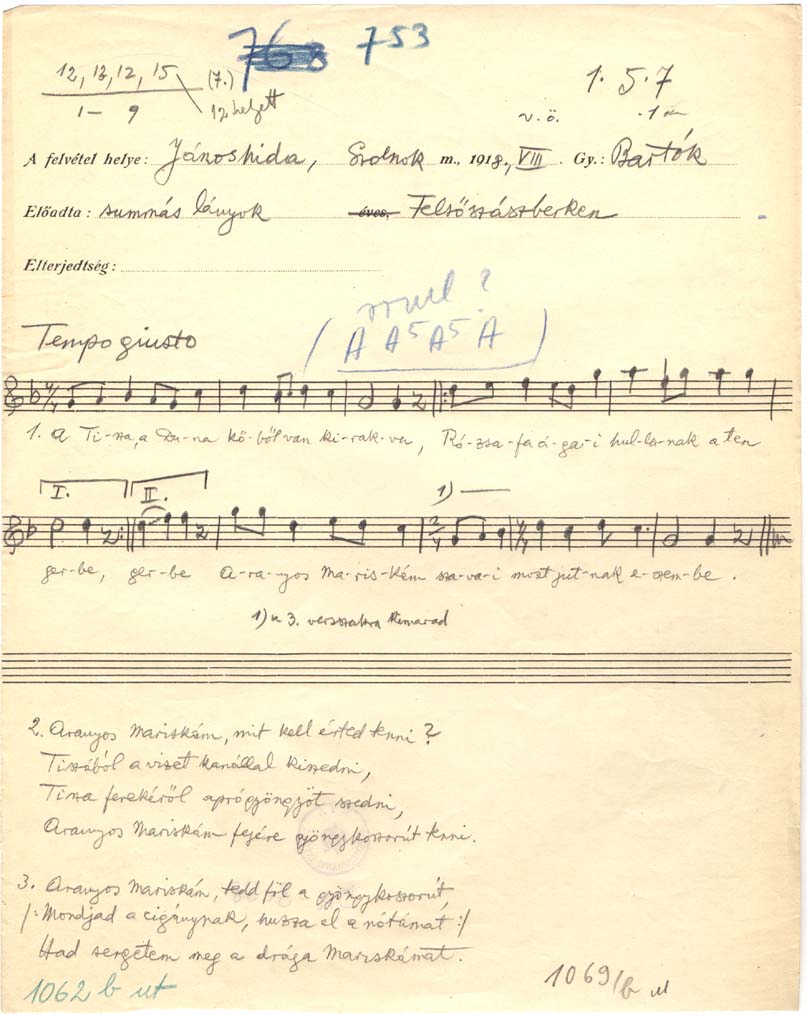 768 753
12, 13, 12, 15 (7.) 1. 5. 7
1 – 9 12 helyett v. ö. . 1
A felvétel helye: Jánoshida, Szolnok m., 1918., VIII. Gy.: Bartók
Előadta: summás lányok éves. Felsőszászberken
Elterjedtség:
?
Tempo giusto ( A A5 A5 A )
1. A Ti-sza, a Du-na kő-ből van ki-rak-va, Ró-zsa-fa á-ga-i hul-la-nak a ten
I. II. 1)
ger-be, ger-be A-ra-nyos Ma-ris-kám sza-va-i most jut-nak e-szem-be.
1) a 3. versszakra kimarad
2. Aranyos Mariskám, mit kell érted tenni?
Tiszából a vizet kanállal kiszedni,
Tisza fenekéről aprógyöngyöt szedni,
Aranyos Mariskám fejére gyöngykoszorút tenni.
3. Aranyos Mariskám, tedd föl a gyöngykoszorút,
/: Mondjad a cigánynak, huzza el a nótámat :/
Had sergetem meg a drága Mariskámat.
1062 b ut 1069/b ut